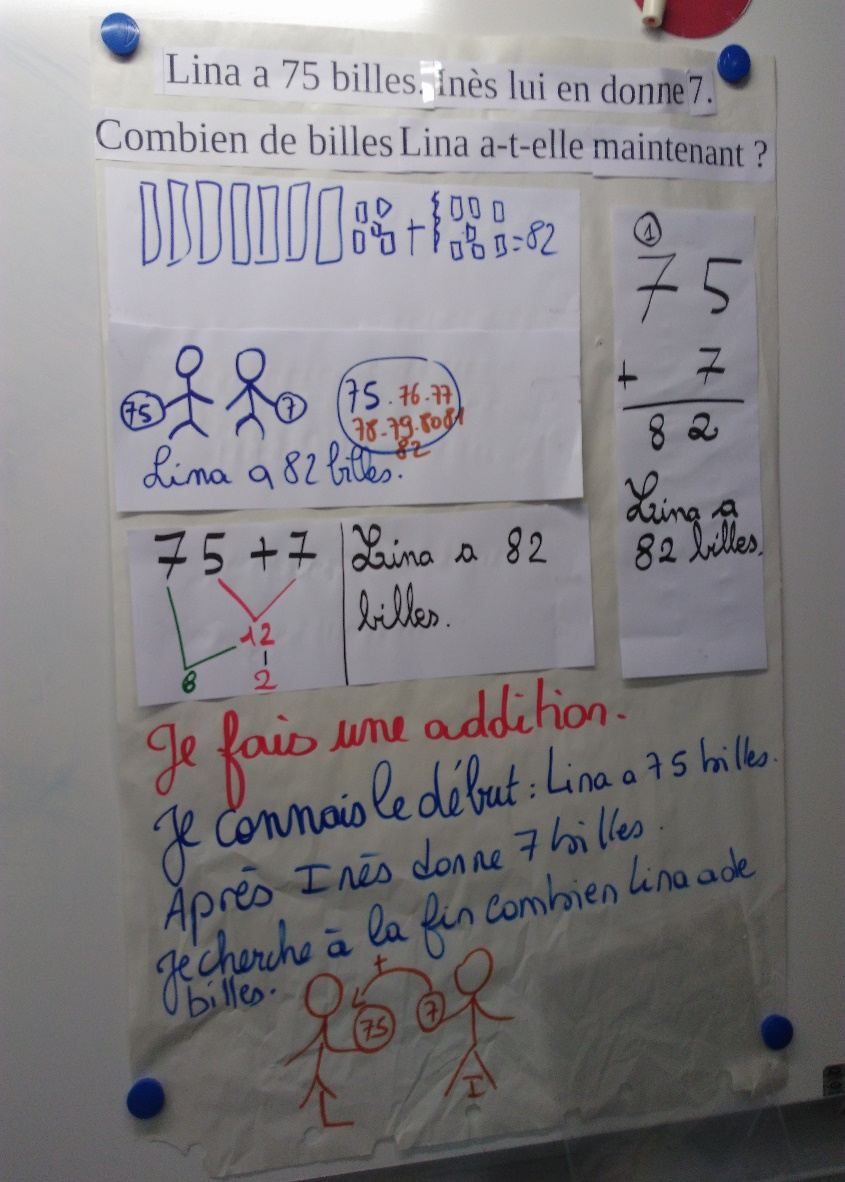 Lina a 75 billes. Inès lui en donne 7.
Combien de billes Lina a-t-elle maintenant ?
+ = 82
75 7
75 . 76 . 77
78 . 79 . 80 81
82
Lina a 82 billes.
75 + 7
12
8 2
Lina a 82
billes.
1
75
+ 7
82
Lina a
82 billes.
Je fais une addition.
Je connais le début : Lina a 75 billes.
Après Inès donne 7 billes.
Je cherche à la fin combien Lina a de
billes.
+
75 7
L I